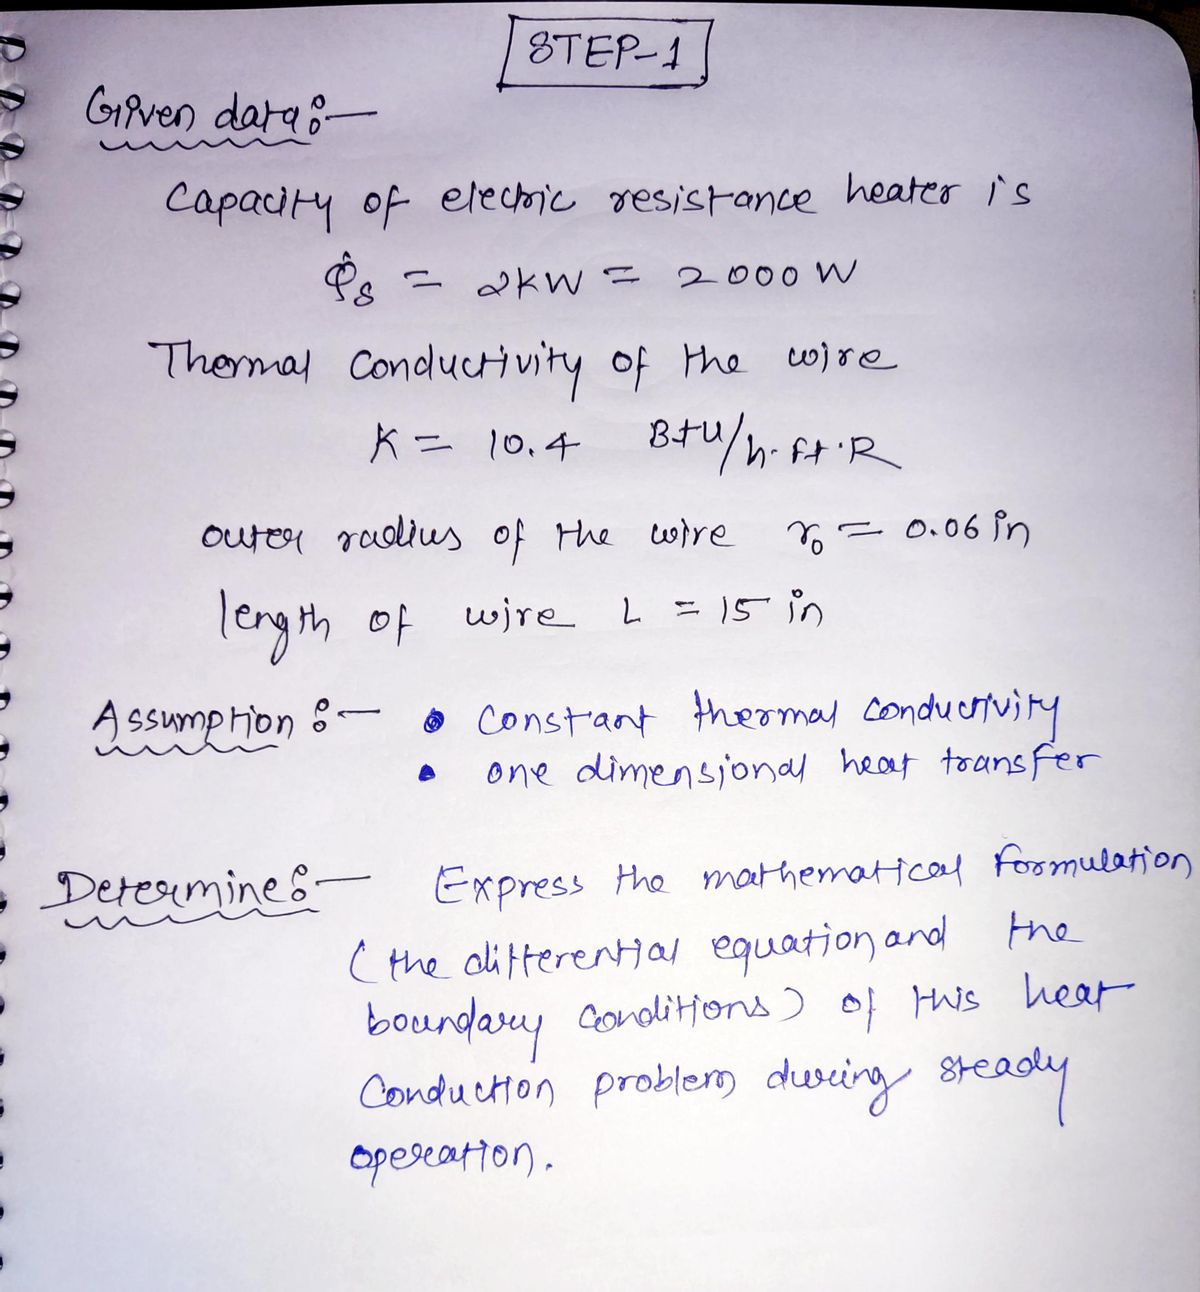 STEP-1
Given data:-
Capacity of electric resistance heater is
Q̇s = 2kW = 2000 W
Thermal Conductivity of the wire
K = 10.4 Btu/h.ft.R
outer radius of the wire r₀ = 0.06 in
length of wire L = 15 in
Assumption :- • Constant thermal conductivity
• one dimensional heat transfer
Determine:- Express the mathematical formulation
(the differential equation and the
boundary conditions) of this heat
Conduction problem during steady
operation.